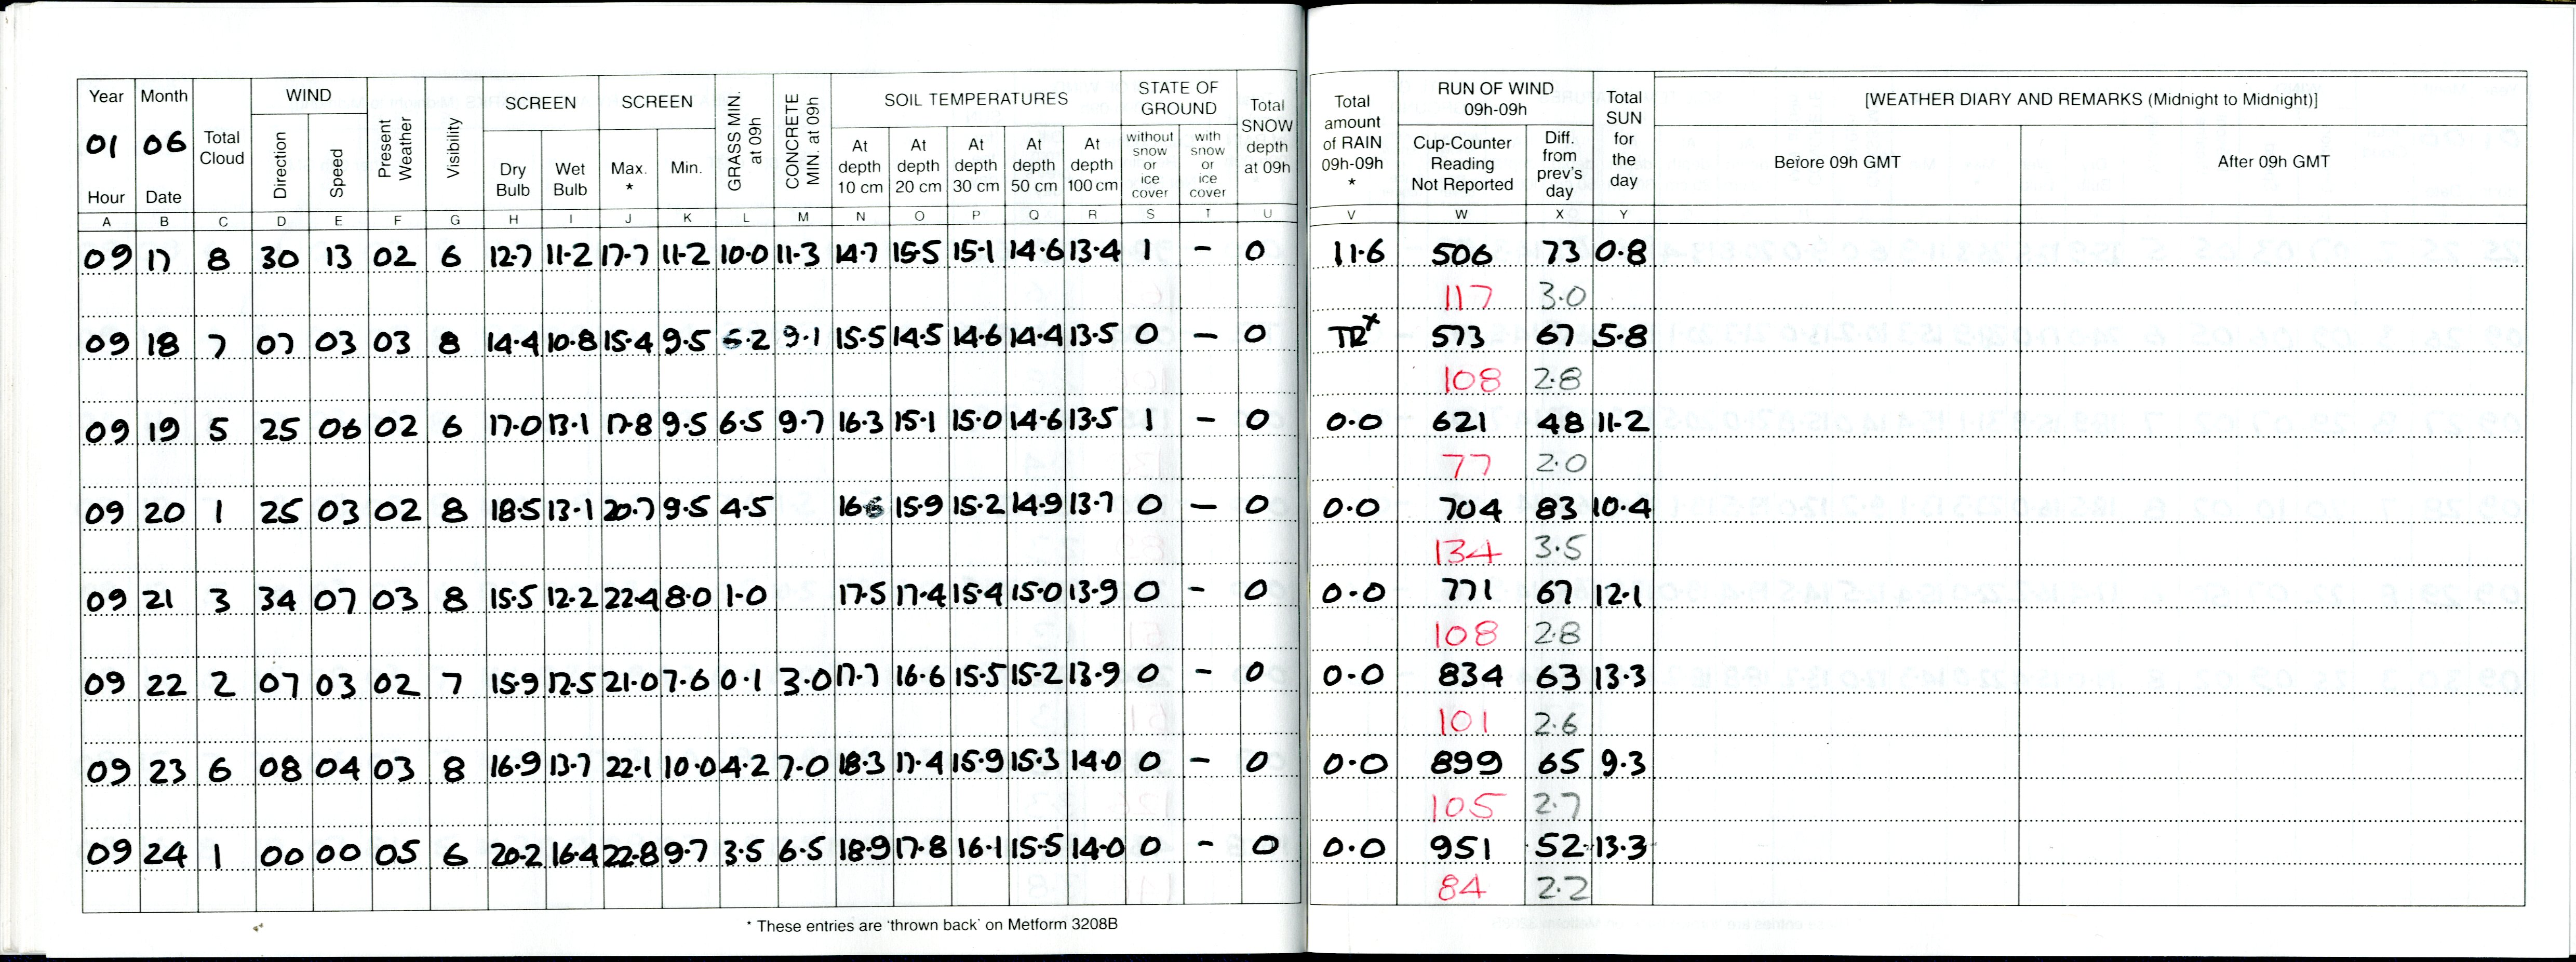 Year Month Total Cloud WIND Present Weather Visibility SCREEN SCREEN GRASS MIN. at 09h CONCRETE MIN. at 09h SOIL TEMPERATURES STATE OF GROUND Total SNOW depth at 09h Total amount of RAIN 09h-09h * RUN OF WIND 09h-09h Total SUN for the day [WEATHER DIARY AND REMARKS (Midnight to Midnight)]
01 06
Hour Date Direction Speed Dry Bulb Wet Bulb Max. * Min. At depth 10 cm At depth 20 cm At depth 30 cm At depth 50 cm At depth 100 cm without snow or ice cover with snow or ice cover Cup-Counter Reading Not Reported Diff. from prev's day Before 09h GMT After 09h GMT
A B C D E F G H I J K L M N O P Q R S T U V W X Y
09 17 8 30 13 02 6 12.7 11.2 17.7 11.2 10.0 11.3 14.7 15.5 15.1 14.6 13.4 1 - 0 11.6 506 73 0.8
117 3.0
09 18 7 07 03 03 8 14.4 10.8 15.4 9.5 6.2 9.1 15.5 14.5 14.6 14.4 13.5 0 - 0 TR x 573 67 5.8
108 2.8
09 19 5 25 06 02 6 17.0 13.1 17.8 9.5 6.5 9.7 16.3 15.1 15.0 14.6 13.5 1 - 0 0.0 621 48 11.2
77 2.0
09 20 1 25 03 02 8 18.5 13.1 20.7 9.5 4.5 16.6 15.9 15.2 14.9 13.7 0 - 0 0.0 704 83 10.4
134 3.5
09 21 3 34 07 03 8 15.5 12.2 22.4 8.0 1.0 17.5 17.4 15.4 15.0 13.9 0 - 0 0.0 771 67 12.1
108 2.8
09 22 2 07 03 02 7 15.9 12.5 21.0 7.6 0.1 3.0 17.7 16.6 15.5 15.2 13.9 0 - 0 0.0 834 63 13.3
101 2.6
09 23 6 08 04 03 8 16.9 13.7 22.1 10.0 4.2 7.0 18.3 17.4 15.9 15.3 14.0 0 - 0 0.0 899 65 9.3
105 2.7
09 24 1 00 00 05 6 20.2 16.4 22.8 9.7 3.5 6.5 18.9 17.8 16.1 15.5 14.0 0 - 0 0.0 951 52 13.3
84 2.2
* These entries are 'thrown back' on Metform 3208B